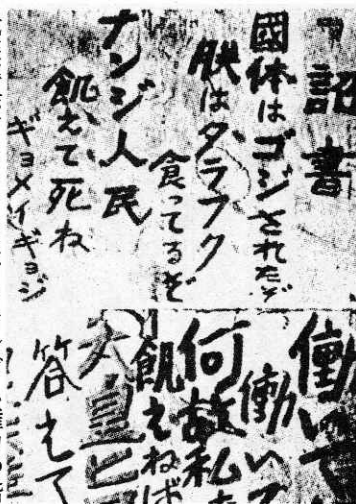 詔書
國体はゴジされたぞ
朕はタラフク
食ってるぞ
ナンジ人民
飢えて死ね
ギョメイギョジ
働いて
働いて
何故私
飢えねば
天皇ヒ
答えて